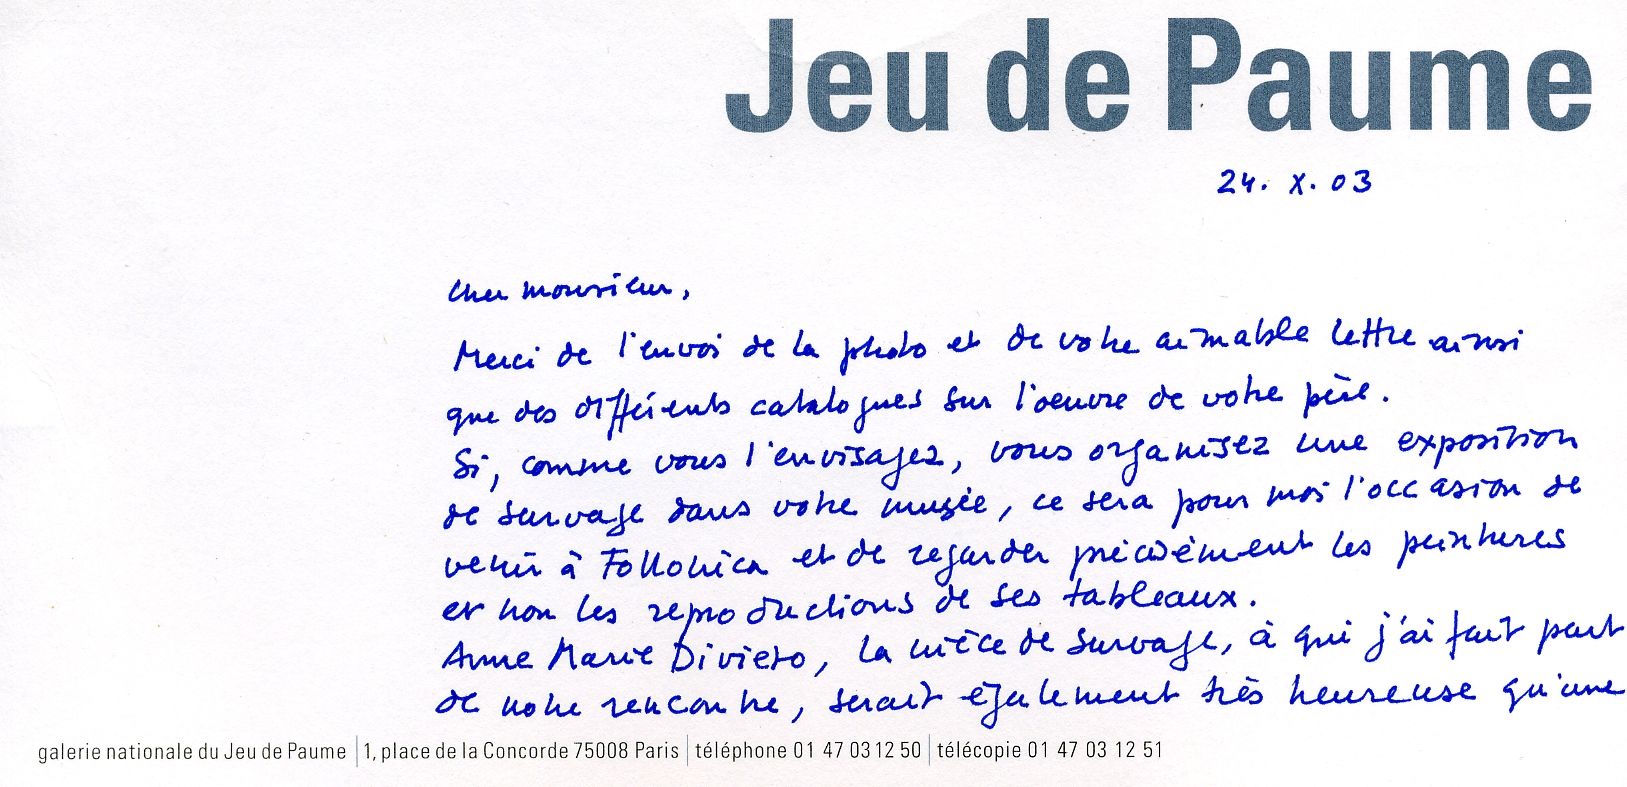 Jeu de Paume
24. X. 03
Cher monsieur,
Merci de l'envoi de la photo et de votre aimable lettre ainsi
que des différents catalogues sur l'oeuvre de votre père.
Si, comme vous l'envisagez, vous organisez une exposition
de Survage dans votre musée, ce sera pour moi l'occasion de
venir à Follonica et de regarder précisément les peintures
et non les reproductions de ses tableaux.
Anne Marie Divieto, la nièce de Survage, à qui j'ai fait part
de notre rencontre, serait également très heureuse qu'une
galerie nationale du Jeu de Paume | 1, place de la Concorde 75008 Paris | téléphone 01 47 03 12 50 | télécopie 01 47 03 12 51